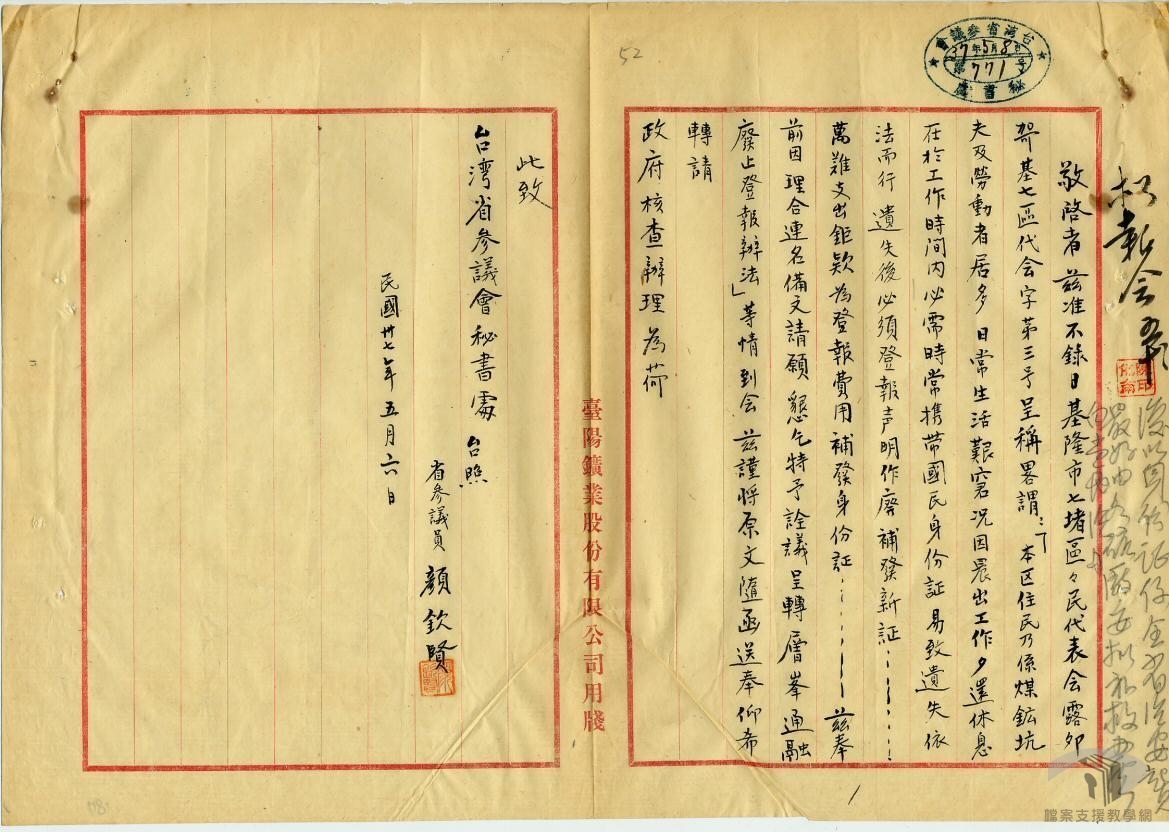 台湾省參議會
37年5月8日
第771号
秘書處
52
敬啓者 茲准不錄日基隆市七堵區々民代表会露卯
哿基七區代会字第三号呈稱畧謂：「本区住民乃係煤鉱坑
夫及勞動者居多 日常生活艱窘况因晨出工作夕還休息
在於工作時间内必需時常携帶國民身份証易致遺失依
法而行 遺失後必須登報声明作廃 補發新証……
萬難支出鉅欵為登報費用補發身份証………茲奉
前因 理合連名備文請願 懇乞特予詮議呈轉層峯通融
廢止登報辦法」等情到会 茲謹将原文隨函送奉仰希
轉請
政府核查辦理為荷
臺陽鑛業股份有限公司用牋
此致
台湾省參議會秘書處 台照
省參議員 顏欽賢
民國卅七年五月六日
檔案支援教學網